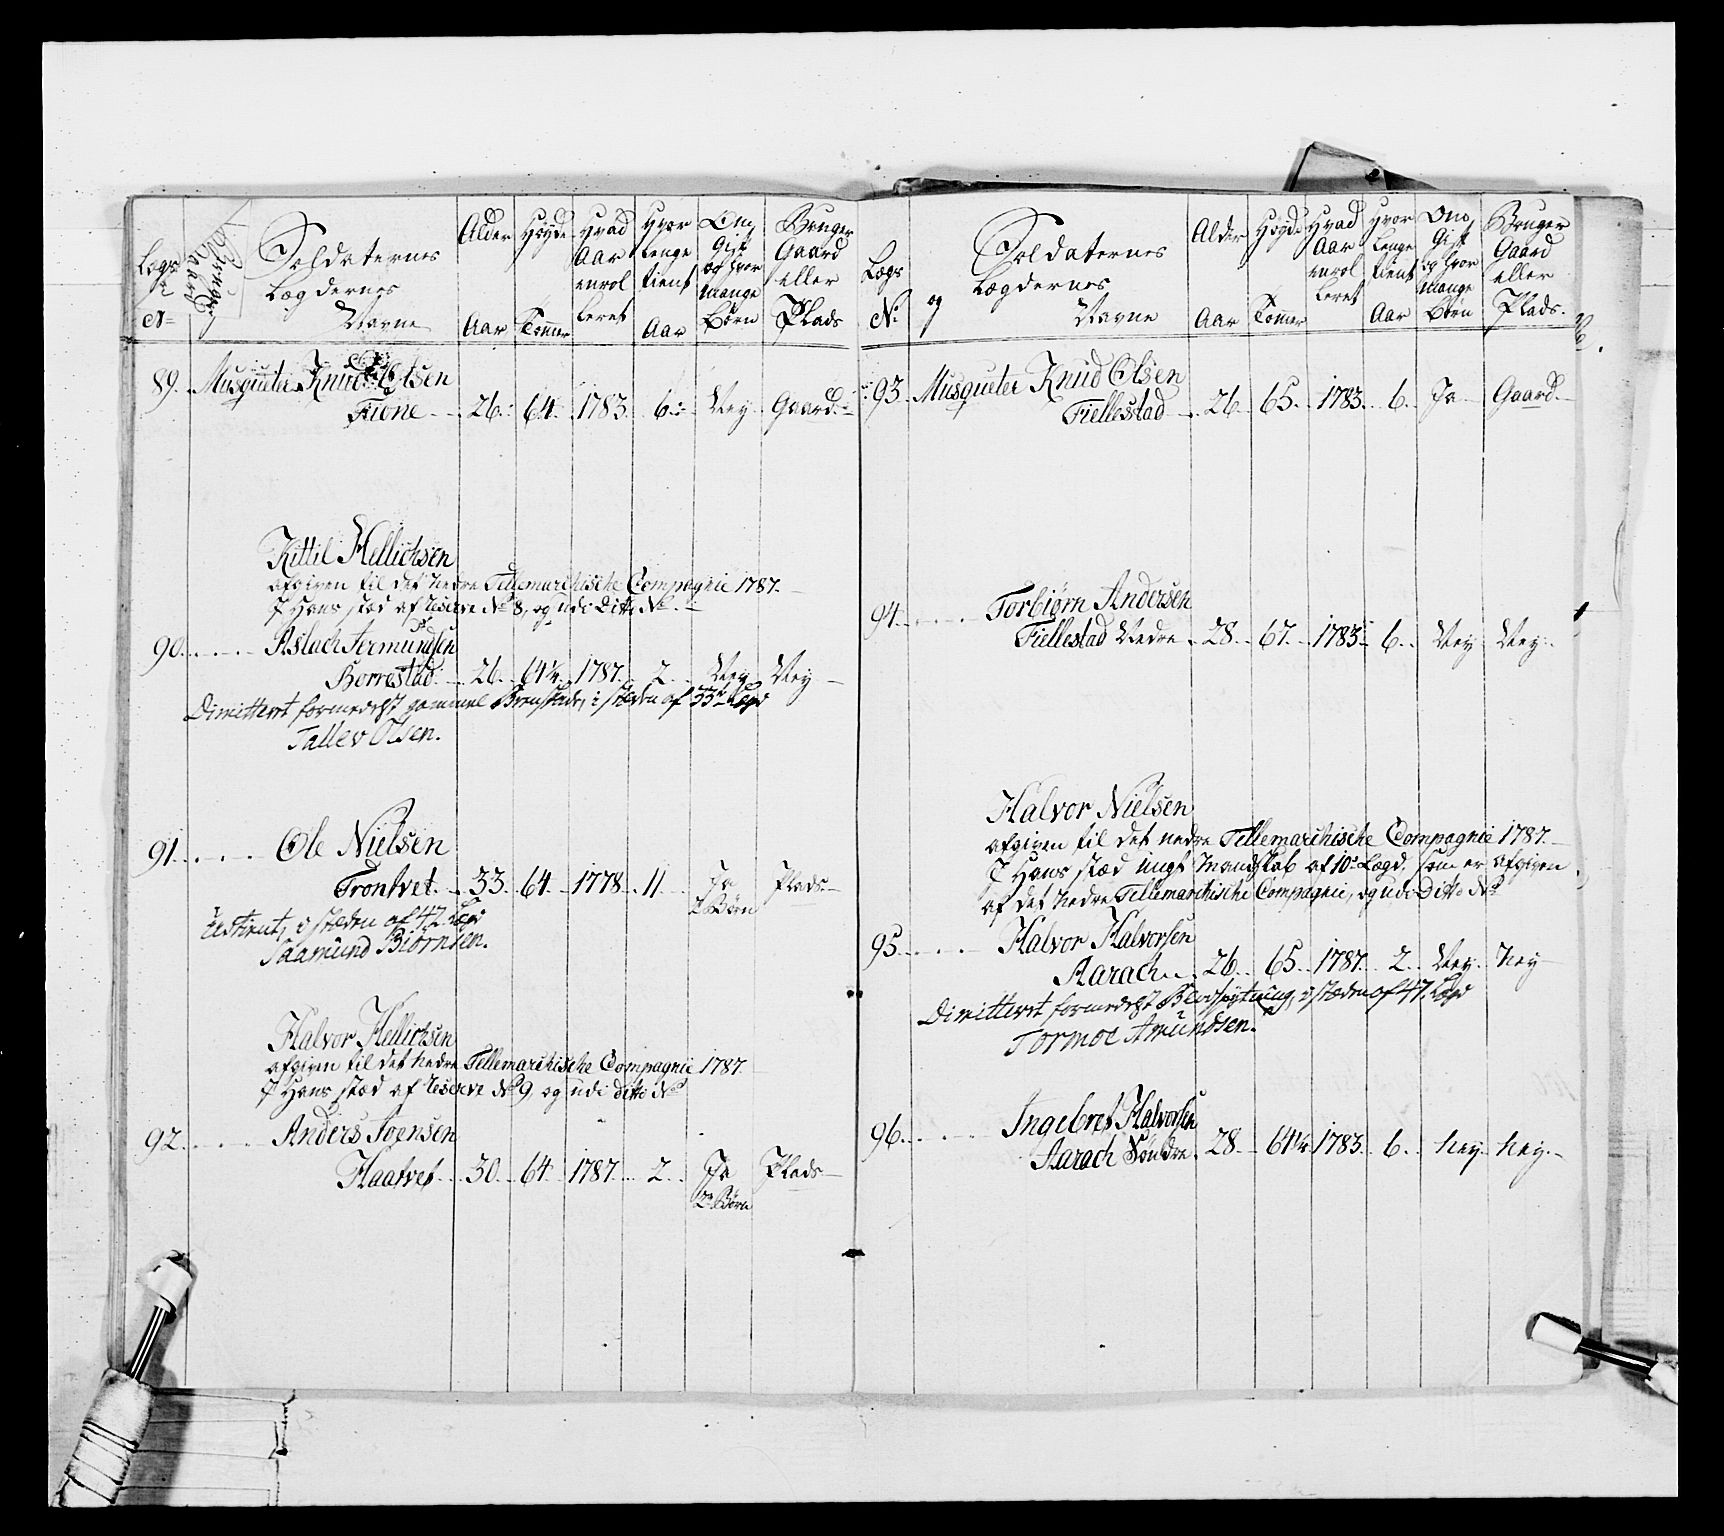 Lægs
No
Soldaternes
og
Lægdernes
Navne
Alder
Aar
Høyde
Tommer
Hvad
Aar
enrol
leret
Hvor
lenge
tient
Aar
Om
Gift
og hvor
mange
Børn
Bruger
Gaard
eller
Plads
89. Musqueter Knud Olsen
Fione 26. 64. 1783. 6. Ney Gaard.
Kittil Hellichsen
afgiven til det nedre Tellemarchische Compagnie 1787.
I Hans stæd af reserve No 8, og udi Ditto No
90. Aslach Germundsen
Borrestad 26. 64¼ 1787. 2. Ney Ney
Dimitteret formedelst gammel, i stæden af 33te Lægd
Tallev Olsen.
91. Ole Nielsen
Trontvet. 33. 64. 1778. 11. Ja Plads
2 Børn
i stæden af 42 Lægd
Saamund Biørnsen.
Halvor Hellichsen
afgiven til det nedre Tellemarchische Compagnie 1787.
I Hans stæd af reserve No 9, og udi ditto No
92. Anders Joensen
Haatvet 30. 64. 1787. 2. Ja Plads
2 Børn
Lægs
No
Soldaternes
og
Lægdernes
Navne
Alder
Aar
Høyde
Tommer
Hvad
Aar
enrol
leret
Hvor
lenge
tient
Aar
Om
Gift
og hvor
mange
Børn
Bruger
Gaard
eller
Plads.
93. Musqueter Knud Olsen
Fiellestad 26. 65. 1783. 6. Ja Gaard.
94. Torbiørn Andersen
Fiellestad Nedre 28. 67. 1783. 6. Ney Ney.
Halvor Nielsen
afgiven til det nedre Tellemarchische Compagnie 1787.
I Hans stæd ungt Mandskab af 10de Lægd, som er afgiven
af det nedre Tellemarchische Compagnie, og udi Ditto No
95. Halvor Halvorsen
Aarach 26. 65. 1787. 2. Ney. Ney
Dimitteret formedelst Blodspytning, i stæden af 47. Lægd
Tormoe Amundsen.
96. Ingebret Halvorsen
Aarach Søndre. 28. 64¼ 1783. 6. Ney Ney.